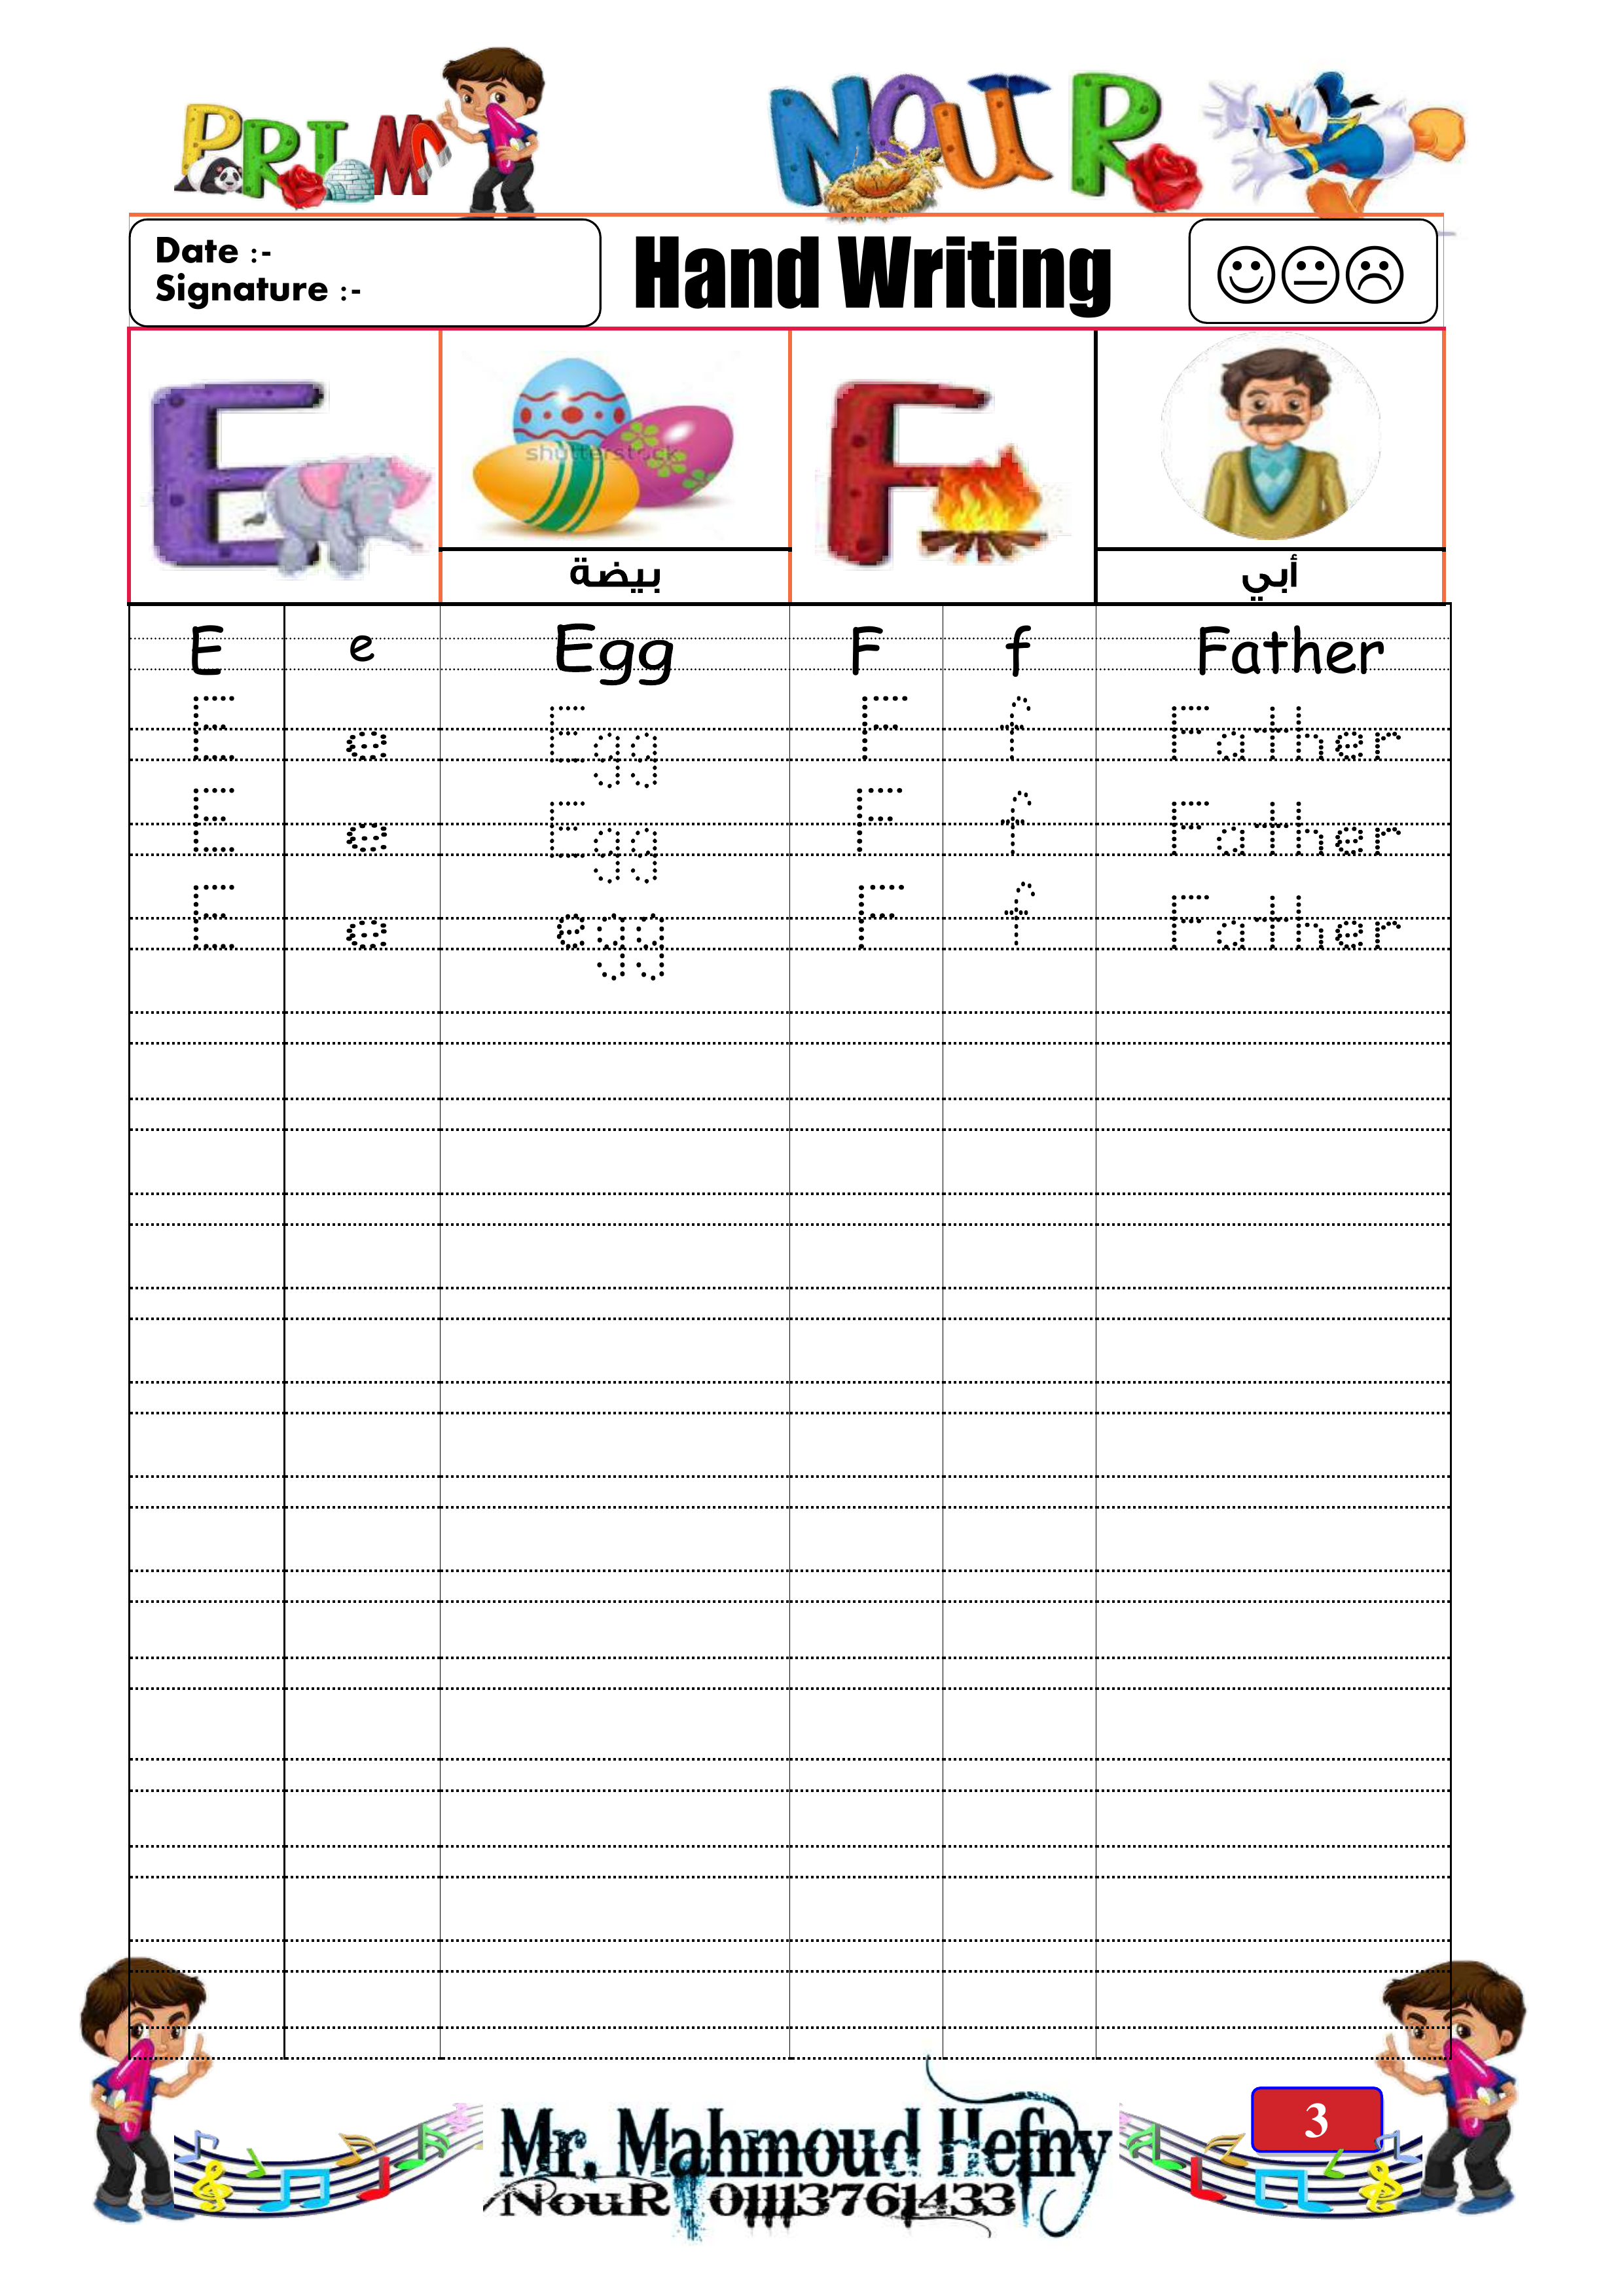 PRIM 1 NOUR
Date :-
Signature :-
Hand Writing
E
shutterstock
F
بيضة
أبي
E e Egg F f Father
E e Egg F f Father
E e Egg F f Father
E e egg F f Father
3
Mr. Mahmoud Hefny
NouR 01113761433